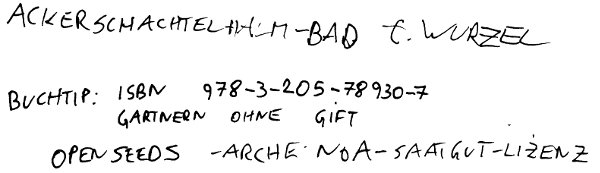 ACKERSCHACHTELHALM-BAD F. WURZEL
BUCHTIP: ISBN 978-3-205-78930-7
GÄRTNERN OHNE GIFT
OPEN SEEDS -ARCHE NOA-SAATGUT-LIZENZ